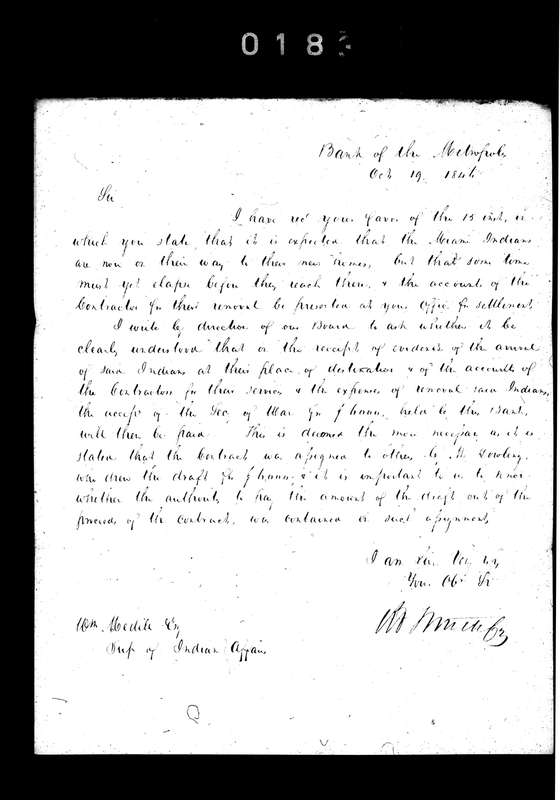 018
Bank of the Metropolis
Oct 19. 1846
Sir
I have recd your favor of the 15 inst, in
which you state, that it is expected that the Miami Indians
are now on their way to their new homes, but that some time
must yet elapse before they reach there, & the accounts of the
Contractor for their removal be presented at your office for settlement
I write by direction of our Board to ask whether it be
clearly understood that on the receipt of evidence of the arrival
of said Indians at their place of destination & of the accounts of
the Contractors for their services & the expenses of removal said Indians,
the accept of the Sec of War for held by this Bank,
will then be paid. This is deemed the more necessary as it is
stated that the Contract was assigned to others, by Dowling,
who drew the draft for & it is important to us to know
whether the authority to pay the amount of the draft out of the
proceeds of the contract, was contained in such assignment
I am Sir, Very
Your Obt St
Smith Cr
Wm. Medill Esq
Sup of Indian Affairs